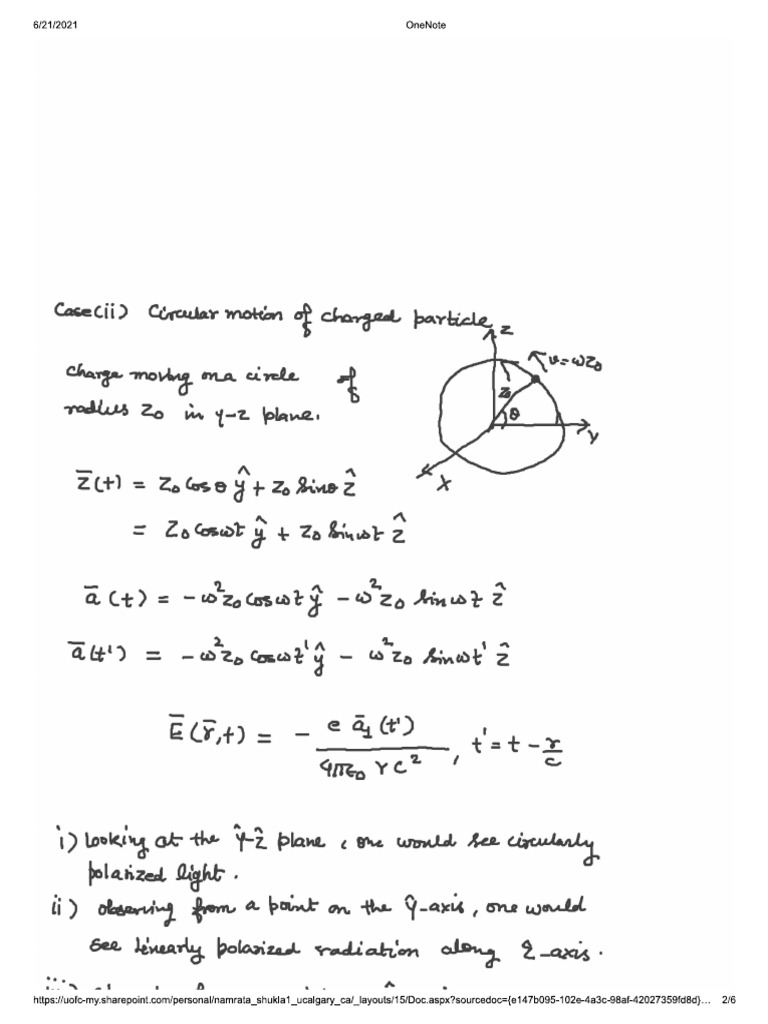 6/21/2021 OneNote
Case(ii) Circular motion of charged particle
Z
v=ωz₀
charge moving on a circle of
z₀
radius z₀ in y-z plane.
θ
y
x
z̄(t) = z₀ cosθ ŷ + z₀ sinθ ẑ
= z₀ cosωt ŷ + z₀ sinωt ẑ
ā(t) = -ω²z₀ cosωt ŷ - ω²z₀ sinωt ẑ
ā(t') = -ω²z₀ cosωt' ŷ - ω²z₀ sinωt' ẑ
Ē(r̄,t) = - e ā⊥(t') / 4πε₀ r c² , t' = t - r/c
i) looking at the ŷ-ẑ plane, one would see circularly
polarized light.
ii) observing from a point on the ŷ-axis, one would
see linearly polarized radiation along ẑ-axis.
https://uofc-my.sharepoint.com/personal/namrata_shukla1_ucalgary_ca/_layouts/15/Doc.aspx?sourcedoc={e147b095-102e-4a3c-98af-42027359fd8d}… 2/6